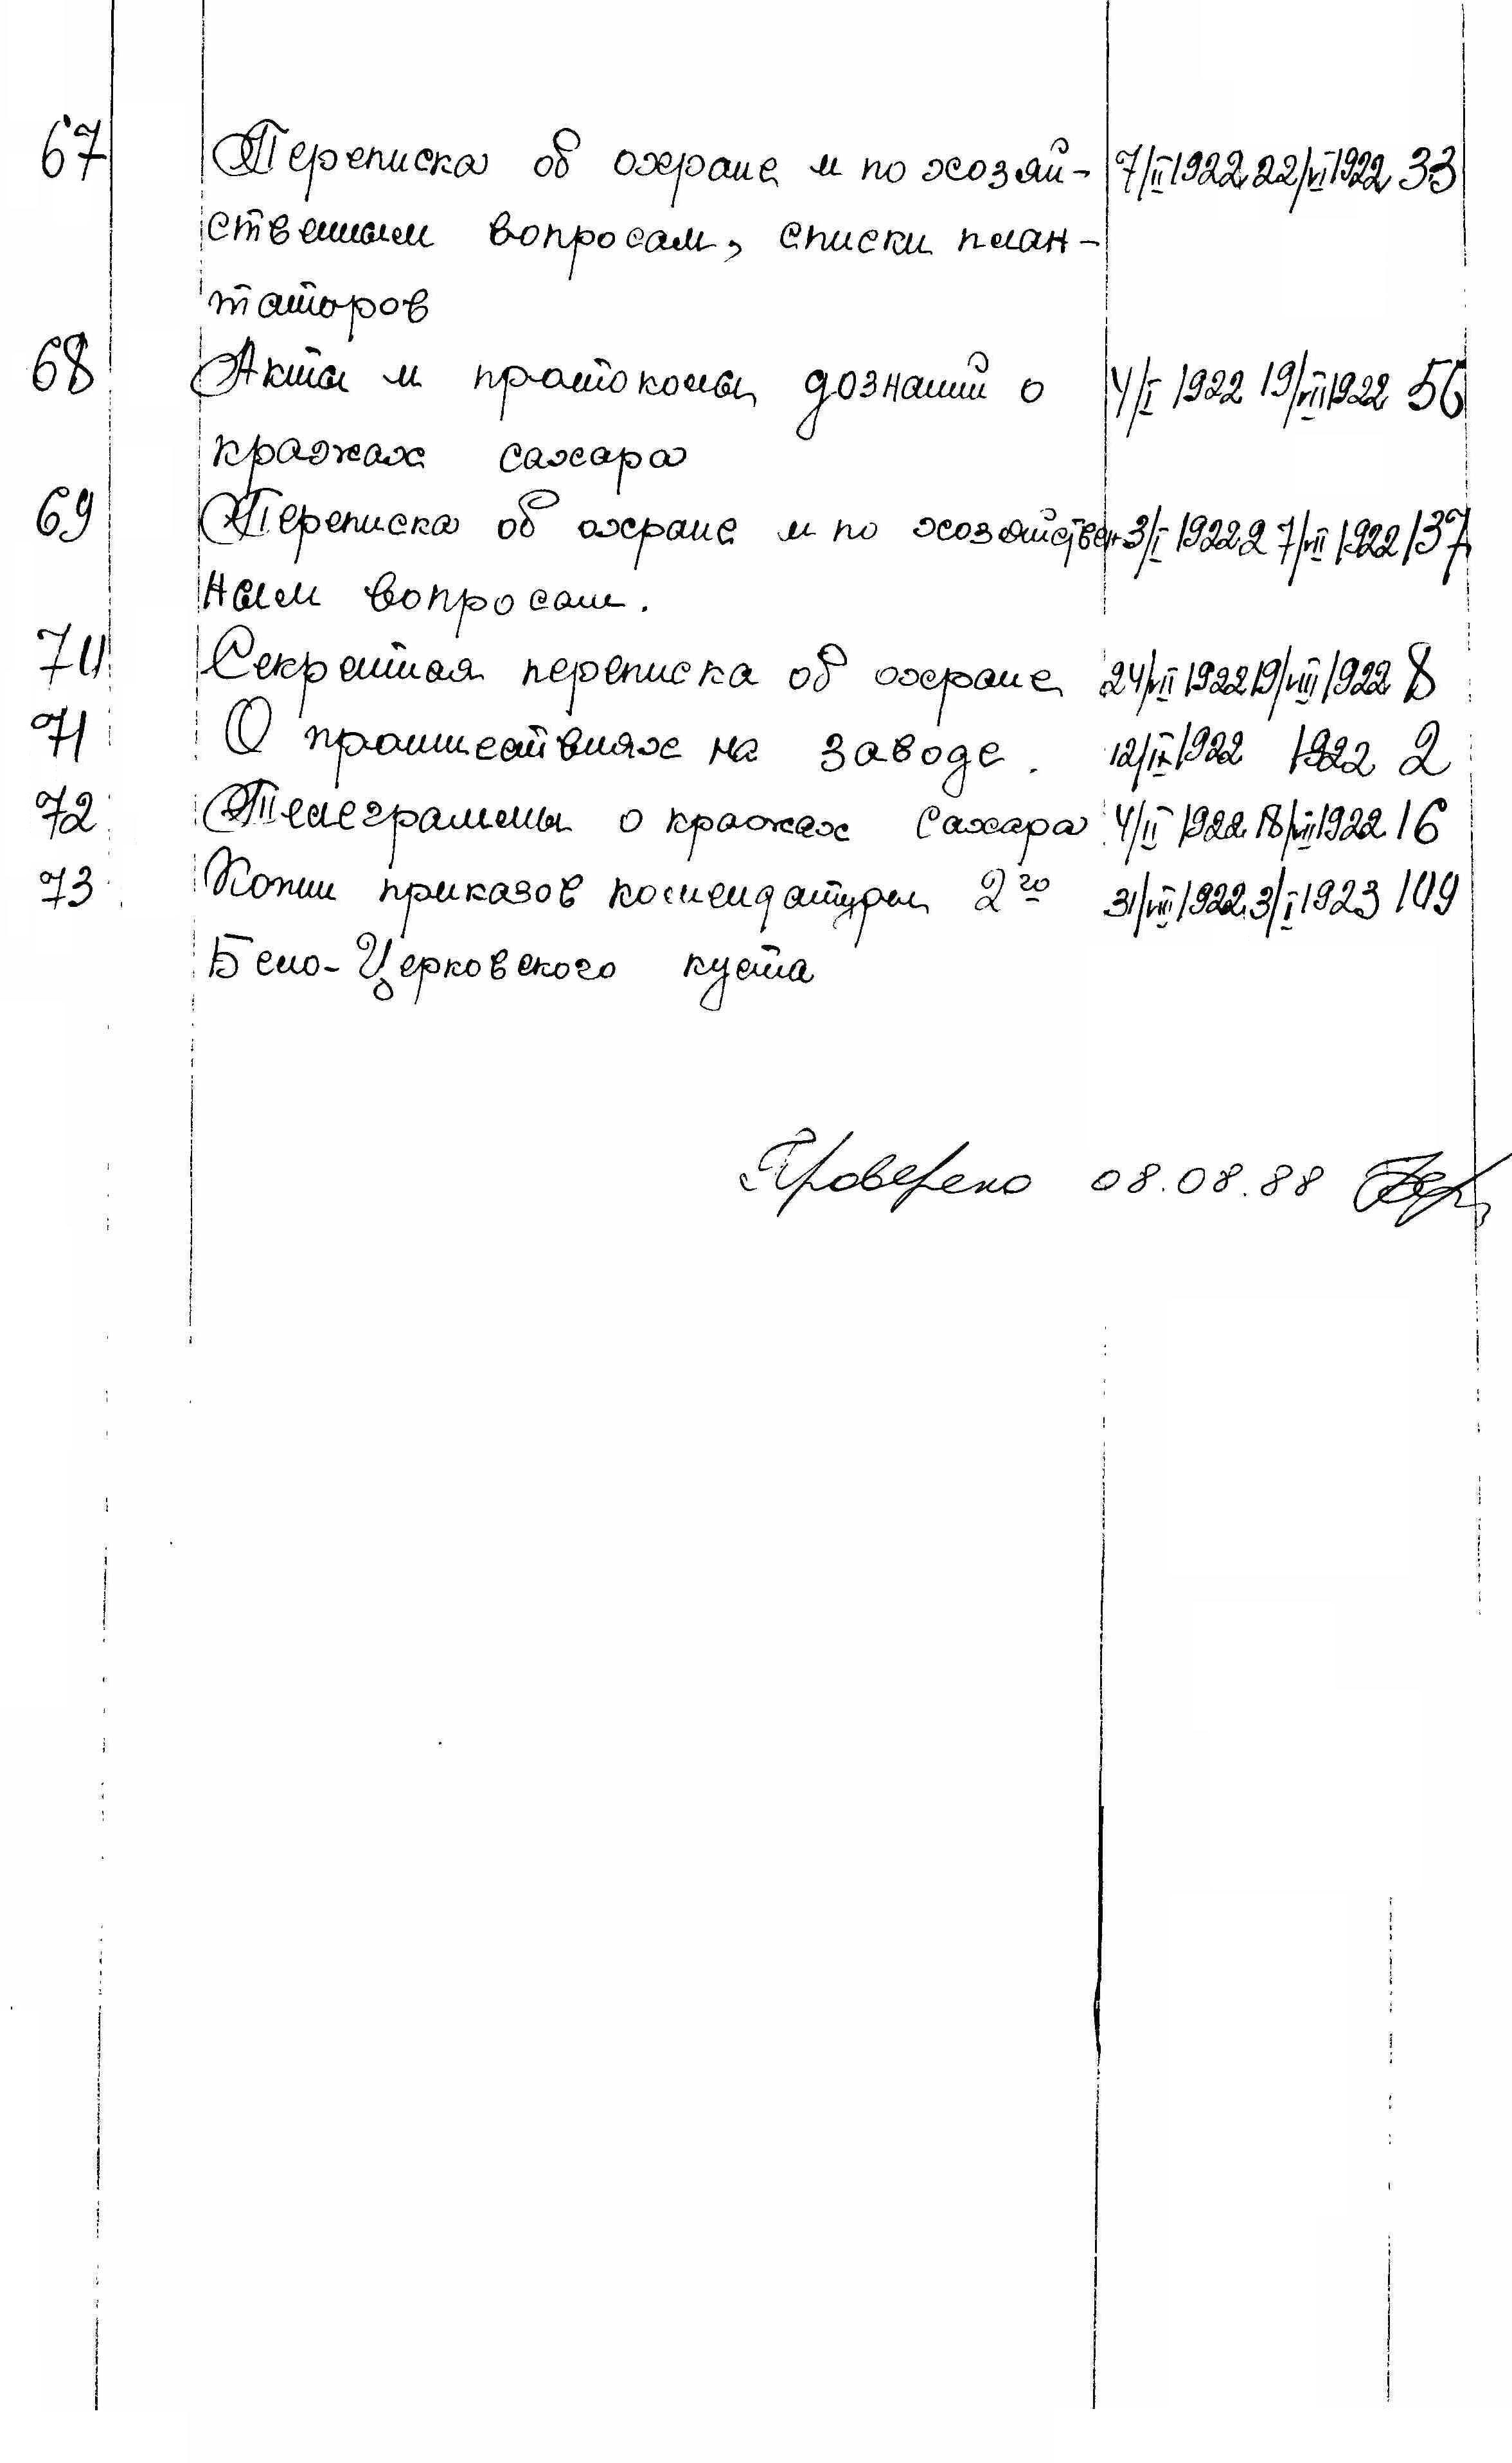 67 Переписка об охране и по хозяй- 7/II 1922 22/VI 1922 33
ственным вопросам, списки план-
таторов
68 Акты и протоколы дознаний о 4/I 1922 19/VII 1922 56
кражах сахара
69 Переписка об охране и по хозяйствен- 3/I 1922 27/VII 1922 137
ным вопросам.
70 Секретная переписка об охране 24/VII 1922 19/VIII 1922 8
71 О проишествиях на заводе. 12/IX 1922 1922 2
72 Телеграммы о кражах сахара 4/II 1922 18/VII 1922 16
73 Копии приказов комендатуры 2го 31/VIII 1922 3/I 1923 109
Бело-Церковского куста
Проверено 08.08.88